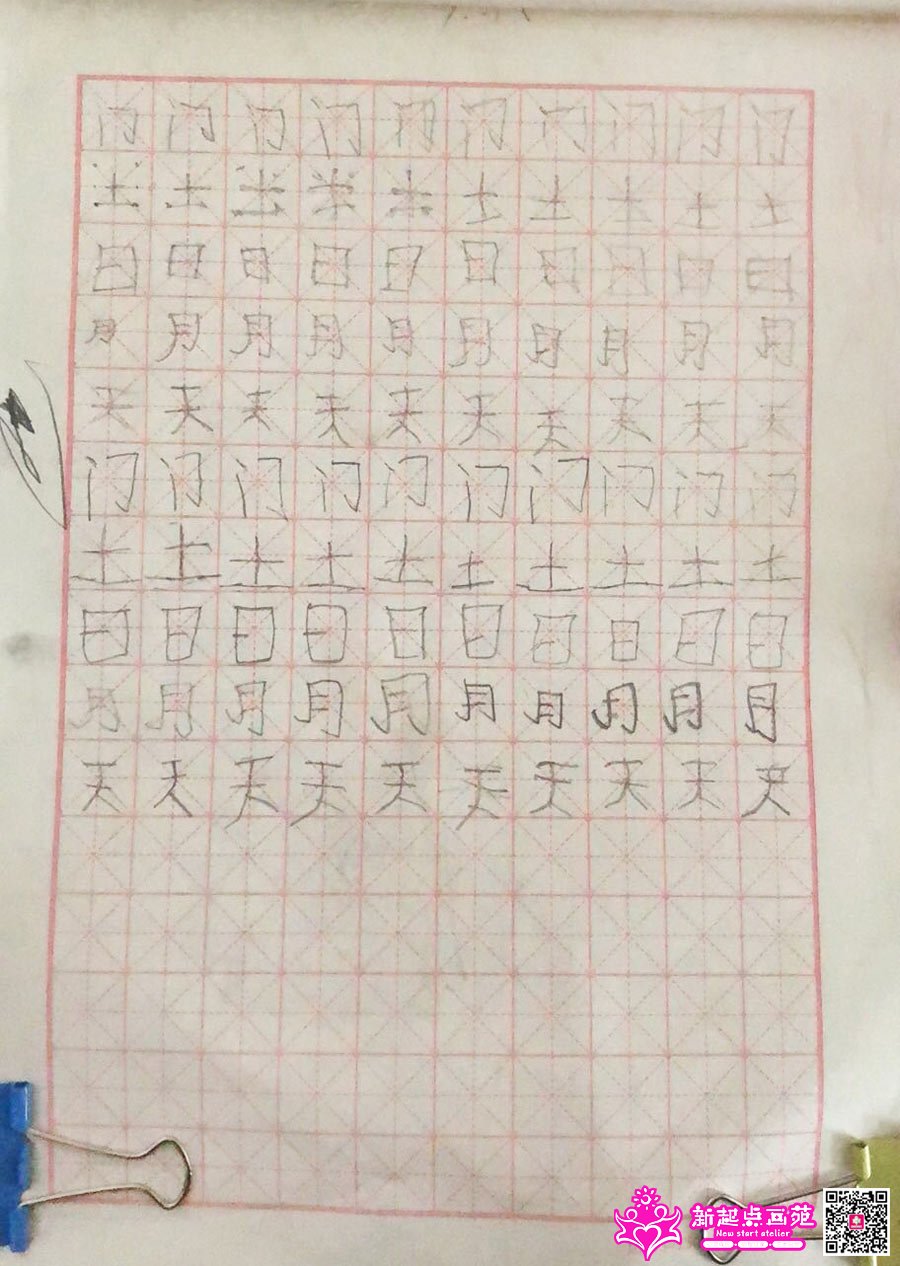 门门门门门门门门门门
土土土土土土土土土土
日日日日日日日日日日
月月月月月月月月月月
天天天天天天天天天天
门门门门门门门门门门
土土土土土土土土土土
日日日日日日日日日日
月月月月月月月月月月
天天天天天天天天天天
新起点画苑
New start atelier